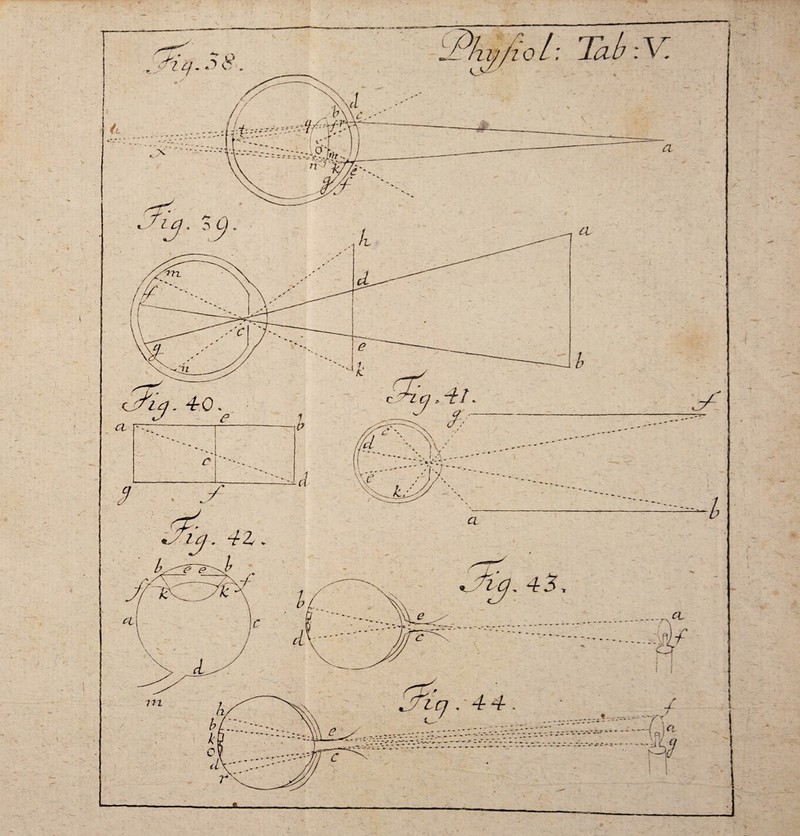 Fig. 38. Phyſiol: Tab: V.
d
b c
q f r
t
a
x o m
n k e
g f
Fig. 39.
h a
m d
f
c
g e
n k b
Fig. 40. Fig. 41.
e g f
a b
c d
c e
g f d k
a b
Fig. 42.
b e e b
f k k f
a c
d
m
Fig. 43.
b e a
d c f
Fig. 44.
h f
b e a
k
o g
d c
r